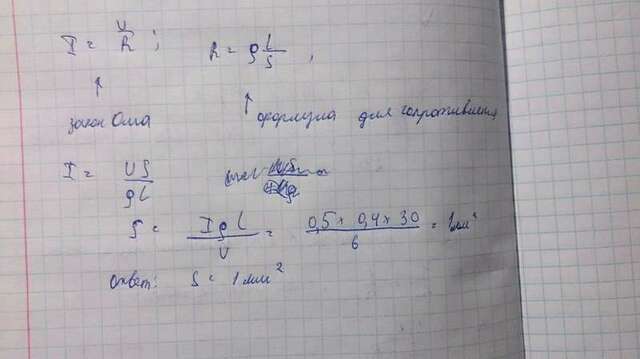 I = U/R ; R = ρ l/S ,
↑ ↑
закон Ома формула для сопротивления
I = US/ρl
S = Iρl/U = 0,5 × 0,4 × 30/6 = 1 мм²
ответ: S = 1 мм²